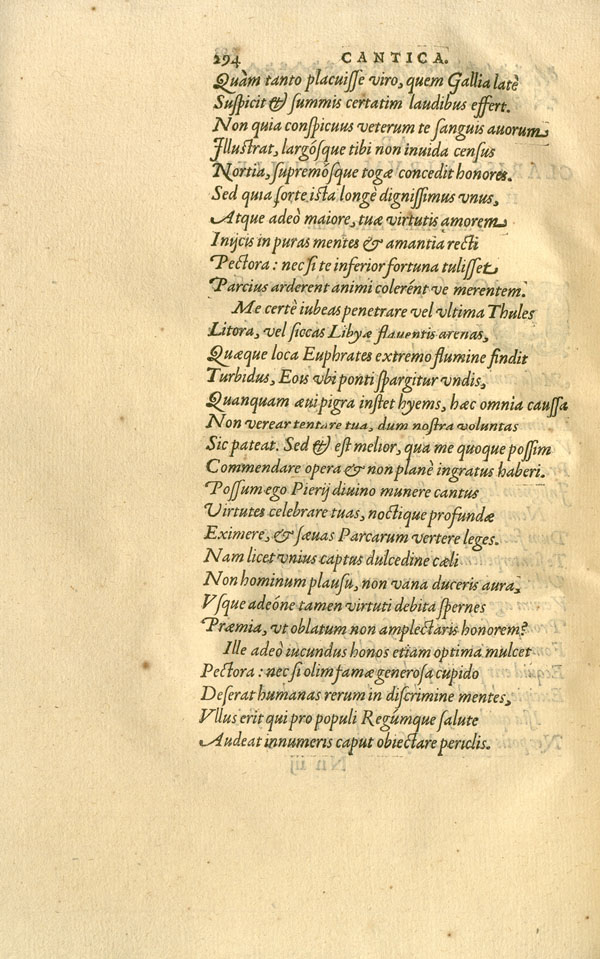 294 CANTICA.
Quàm tanto placuisse viro, quem Gallia latè
Suspicit & summis certatim laudibus effert.
Non quia conspicuus veterum te sanguis auorum
Illustrat, largósque tibi non inuida census
Nortia, supremósque togæ concedit honores.
Sed quia forte ista longè dignissimus vnus,
Atque adeò maiore, tuæ virtutis amorem
Inijcis in puras mentes & amantia recti
Pectora: nec si te inferior fortuna tulisset
Parcius arderent animi colerént ve merentem.
Me certè iubeas penetrare vel vltima Thules
Litora, vel siccas Libyæ flauentis arenas,
Quæque loca Euphrates extremo flumine findit
Turbidus, Eois vbi ponti spargitur vndis,
Quanquam æui pigra instet hyems, hæc omnia caussa
Non verear tentare tua, dum nostra voluntas
Sic pateat. Sed & est melior, qua me quoque possim
Commendare opera & non planè ingratus haberi.
Possum ego Pierij diuino munere cantus
Virtutes celebrare tuas, noctique profundæ
Eximere, & sæuas Parcarum vertere leges.
Nam licet vnius captus dulcedine cæli
Non hominum plausu, non vana duceris aura,
Vsque adeóne tamen virtuti debita spernes
Præmia, vt oblatum non amplectaris honorem?
Ille adeò iucundus honos etiam optima mulcet
Pectora: nec si olim famæ generosa cupido
Deserat humanas rerum in discrimine mentes,
Vllus erit qui pro populi Regúmque salute
Audeat innumeris caput obiectare periclis.